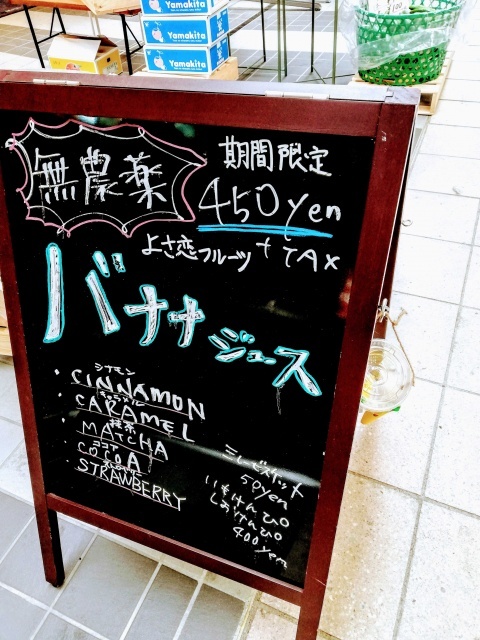 Yamakita
Yamakita
Yamakita
無農薬
期間限定
450yen
+ TAX
よさ恋フルーツ
バナナ
ジュース
シナモン
・CINNAMON
キャラメル
・CARAMEL
抹茶
・MATCHA
ココア
・COCOA
・STRAWBERRY
ミレービスケット
50yen
いもけんぴ
しおけんぴ
400yen